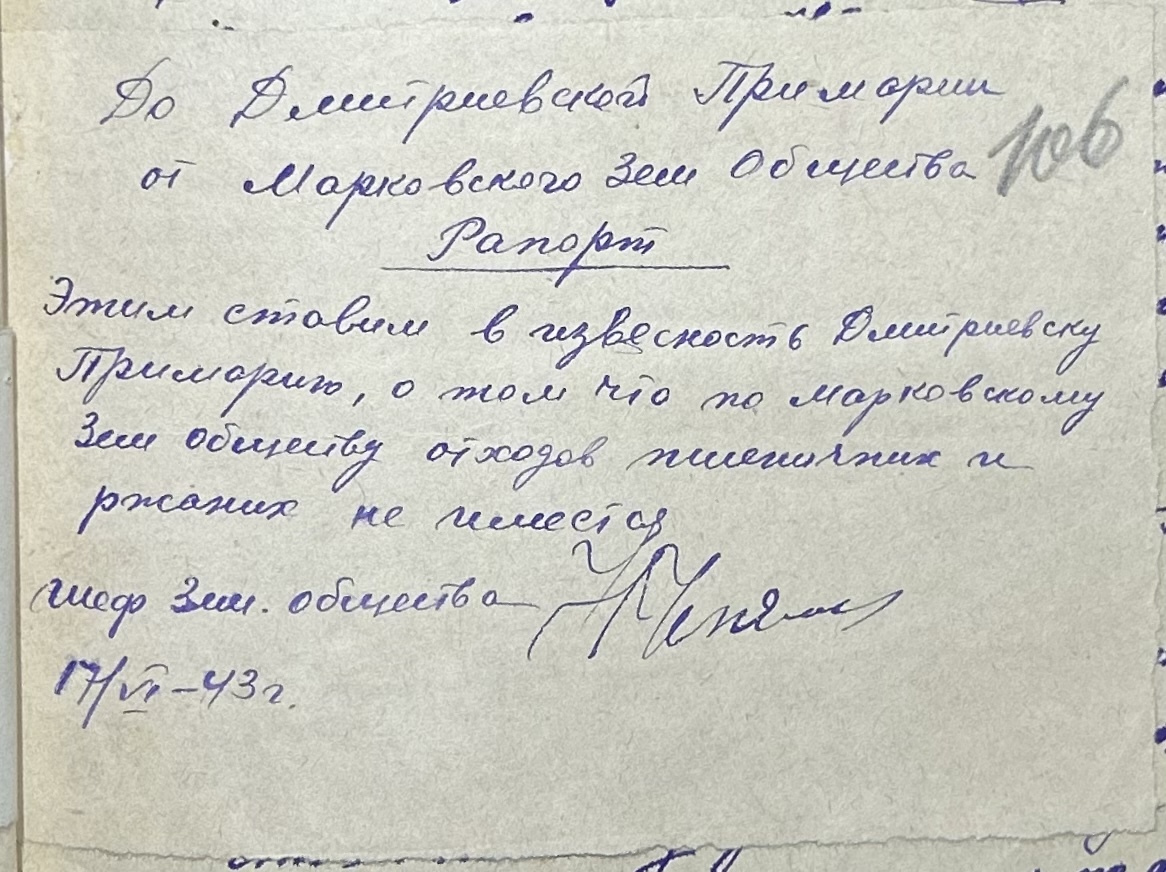 До Дмитриевской Примарии
106
от Марковского Зем Общества
Рапорт
Этим ставим в извесность Дмитриевску
Примарию, о том что по Марковскому
Зем обществу отходов пшеничних и
ржаних не имеется
шеф Зем. общества
17/VI-43 г.